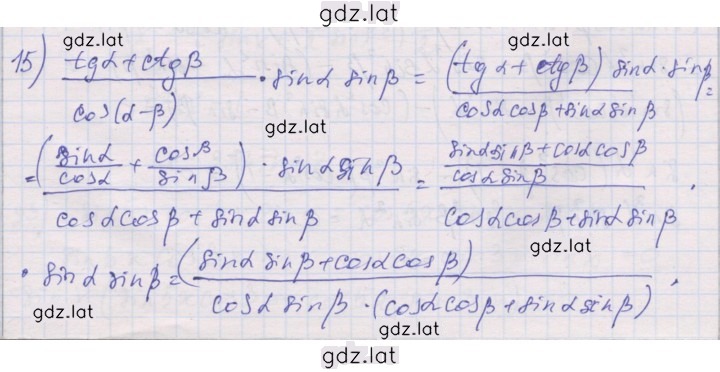 gdz.lat
gdz.lat
15) (tgα + ctgβ)/cos(α-β) · sinα sinβ = (tgα + ctgβ) sinα · sinβ/(cosαcosβ + sinαsinβ) =
gdz.lat
= (sinα/cosα + cosβ/sinβ) · sinαsinβ/(cosαcosβ + sinαsinβ) = ((sinαsinβ + cosαcosβ)/(cosαsinβ))/(cosαcosβ + sinαsinβ) ·
gdz.lat
· sinα sinβ = (sinα sinβ + cosαcosβ)/(cosαsinβ · (cosαcosβ + sinαsinβ)) ·
gdz.lat
gdz.lat
gdz.lat